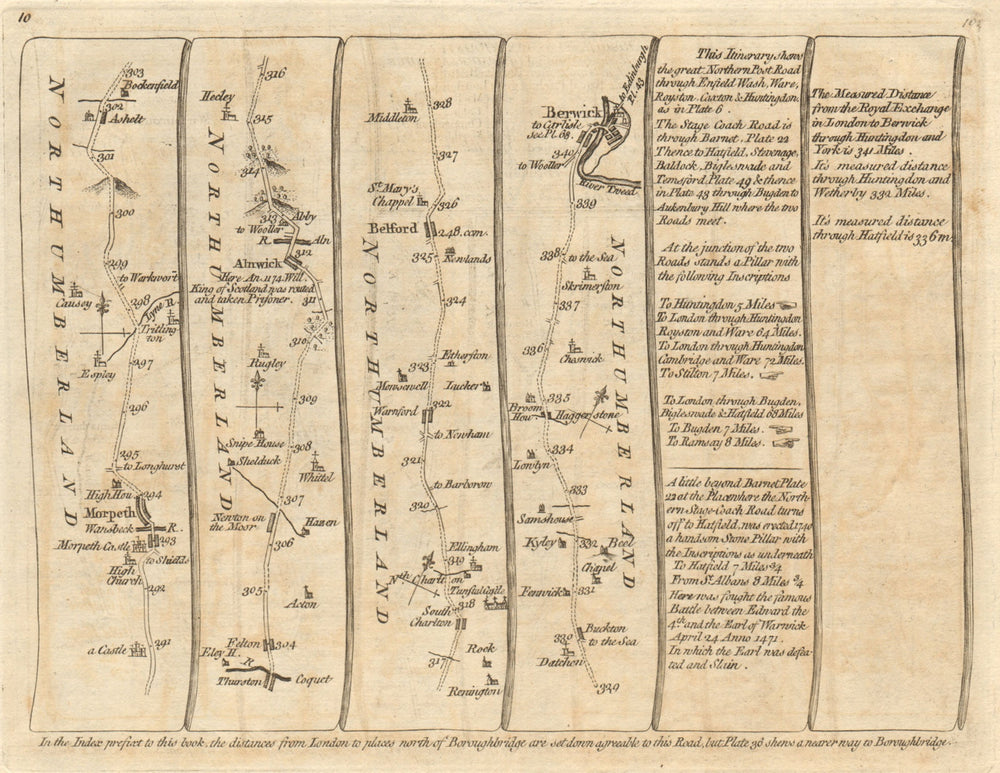 10
303
Bockenfield
302
Ashelt
301
300
299
to Warkworth
298
Causey
Tyne R.
Tritling-
ton
297
Espley
296
295
to Longhurst
High Hou
294
Morpeth
Wansbeck R.
293
Morpeth Castle
to Shields
High
Church
292
291
a Castle
NORTHUMBERLAND
316
Hecley
315
314
313
Abby
to Wooller
R. Aln
312
Alnwick
Here An. 1174 Will.
King of Scotland was routed
and taken Prisoner.
311
310
Rugley
309
Snipe House
308
Shelduck
Whittel
307
Newton on
the Moor
Hazen
306
305
Acton
Felton
304
Eley H.
R
Thurston
Coquet
NORTHUMBERLAND
328
Middleton
327
St. Mary's
Chappel
326
Belford
248.com.
325
Newlands
324
Etherston
323
Mowsewell
Lucker
322
Warnford
to Newham
321
to Barborow
320
Ellingham
319
Nth. Charlton
Tunstal Castle
318
South
Charlton
317
Rock
Renington
NORTHUMBERLAND
to Edinburgh
Pl. 43
Berwick
to Carlisle
see Pl. 68.
340
to Wooller
River Tweed
339
338
to the Sea
Skrimerston
337
336
Cheswick
335
Broom
Hou
Haggerstone
334
Lowlyn
333
Samshouse
Kyley
332
Beel
Chapel
Fenwick
331
330
Buckton
to the Sea
Datchen
329
NORTHUMBERLAND
This Itinerary shews
the great Northern Post Road
through Enfield Wash, Ware,
Royston Caxton & Huntingdon
as in Plate 6.
The Stage Coach Road is
through Barnet, Plate 22
Thence to Hatfield, Stevenage,
Baldock, Bigleswade and
Temsford, Plate 49 & thence
in Plate 43 through Bugden to
Aukenbury Hill where the two
Roads meet.
At the junction of the two
Roads stands a Pillar with
the following Inscriptions
To Huntingdon 5 Miles
To London through Huntingdon
Royston and Ware 64 Miles.
To London through Huntingdon
Cambridge and Ware 72 Miles.
To Stilton 7 Miles.
To London through Bugden,
Bigleswade & Hatfield 68 Miles
To Bugden 7 Miles.
To Ramsay 8 Miles.
A little beyond Barnet Plate
22 at the Place where the North-
ern Stage-Coach Road turns
off to Hatfield, was erected 1740
a handsom Stone Pillar with
the Inscriptions as underneath
To Hatfield 7 Miles 3/4
From St. Albans 8 Miles 3/4
Here was fought the famous
Battle between Edward the
4th. and the Earl of Warwick
April 24 Anno 1471.
In which the Earl was defea-
ted and Slain.
The Measured Distance
from the Royal Exchange
in London to Berwick
through Huntingdon and
York is 341 Miles.
It's measured distance
through Huntingdon and
Wetherby 332 Miles.
It's measured distance
through Hatfield is 336 m.
In the Index prefixt to this book, the distances from London to places north of Boroughbridge are set down agreeable to this Road, but Plate 38 shews a nearer way to Boroughbridge.